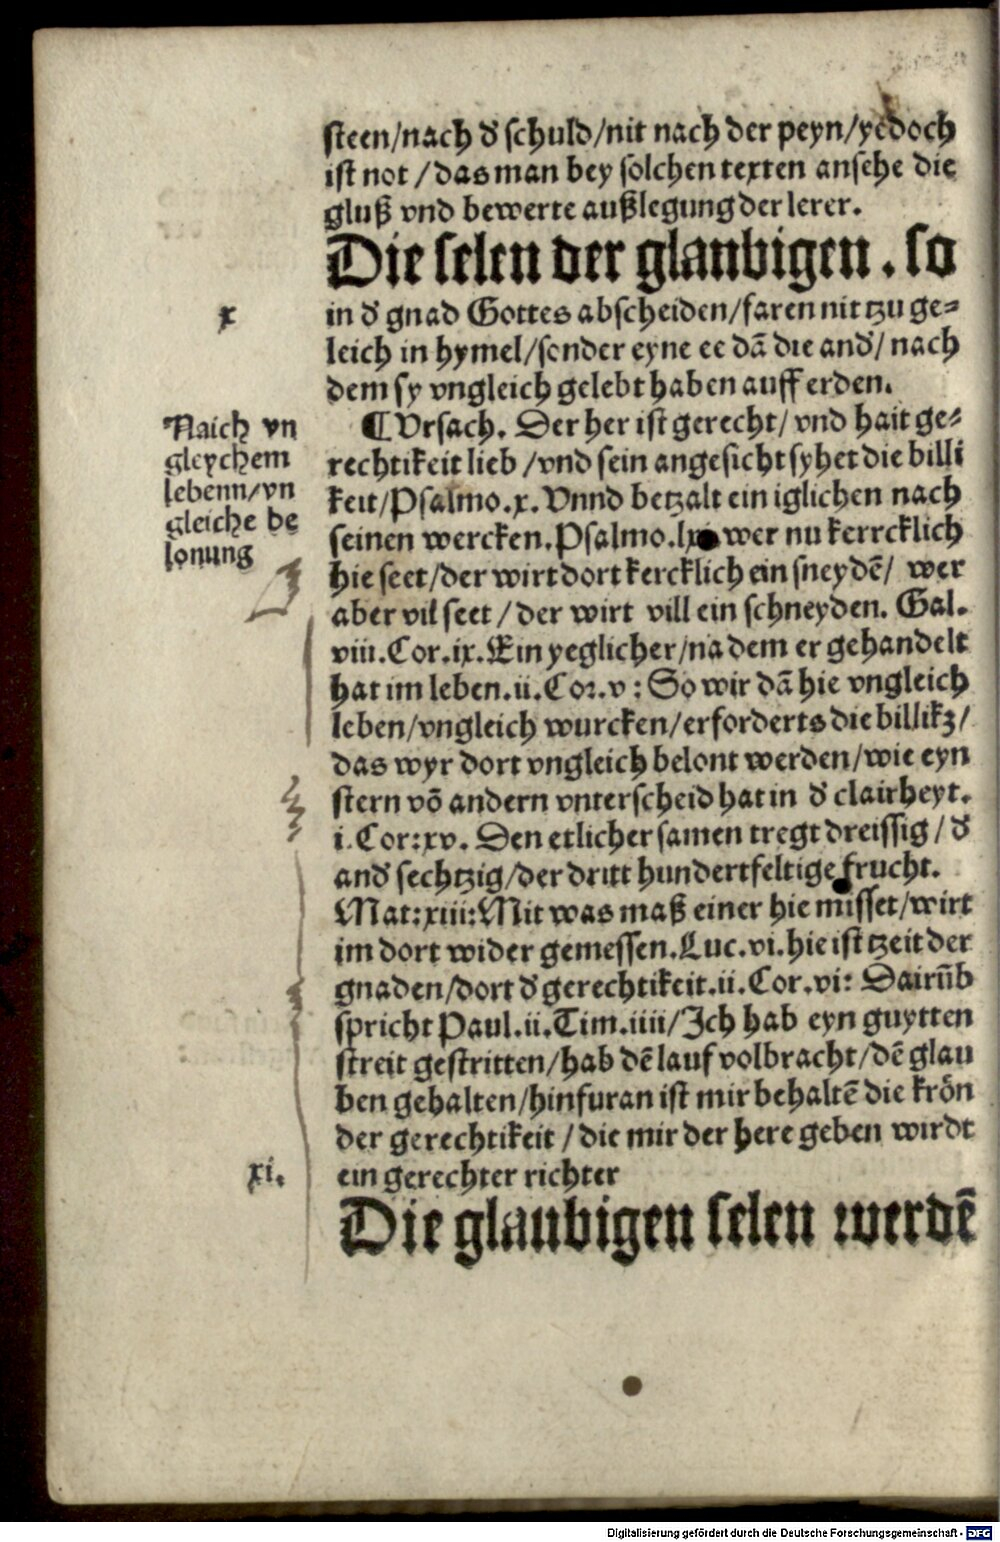 steen/nach d' schuld/nit nach der peyn/yedoch
ist not/das man bey solchen texten ansehe die
gluß vnd bewerte außlegung der lerer.
Die selen der glaubigen. so
x
in d' gnad Gottes abscheiden/faren nit tzu ge⸗
leich in hymel/sonder eyne ee dā die and'/nach
dem sy vngleich gelebt haben auff erden.
Naich vn
gleychem
lebenn/vn
gleiche be
lonung
¶ Vrsach. Der her ist gerecht/vnd hait ge⸗
rechtikeit lieb/vnd sein angesicht syhet die billi
keit/Psalmo.x. Vnnd betzalt ein iglichen nach
seinen wercken. Psalmo. wer nu kerrcklich
hie seet/der wirt dort kercklich ein sneydē/ wer
aber vil seet/der wirt vill ein schneyden. Gal.
viii. Cor.ix. Ein yeglicher/na dem er gehandelt
hat im leben.ii.Cor.v: So wir dā hie vngleich
leben/vngleich wurcken/erforderts die billikꝫ/
das wyr dort vngleich belont werden/wie eyn
stern vō andern vnterscheid hat in d' clairheyt.
i.Cor:xv. Den etlicher samen tregt dreissig/d'
and' sechtzig/der dritt hundertfeltige frucht.
Mat:xiii: Mit was maß einer hie misset/wirt
im dort wider gemessen. Luc.vi. hie ist tzeit der
gnaden/dort d' gerechtikeit.ii.Cor.vi: Dairūb
spricht Paul.ii.Tim.iiii/Jch hab eyn guytten
streit gestritten/hab dē lauf volbracht/dē glau
ben gehalten/hinfuran ist mir behaltē die krōn
der gerechtikeit/die mir der here geben wirdt
xi.
ein gerechter richter
Die glaubigen selen werdē
Digitalisierung gefördert durch die Deutsche Forschungsgemeinschaft - DFG